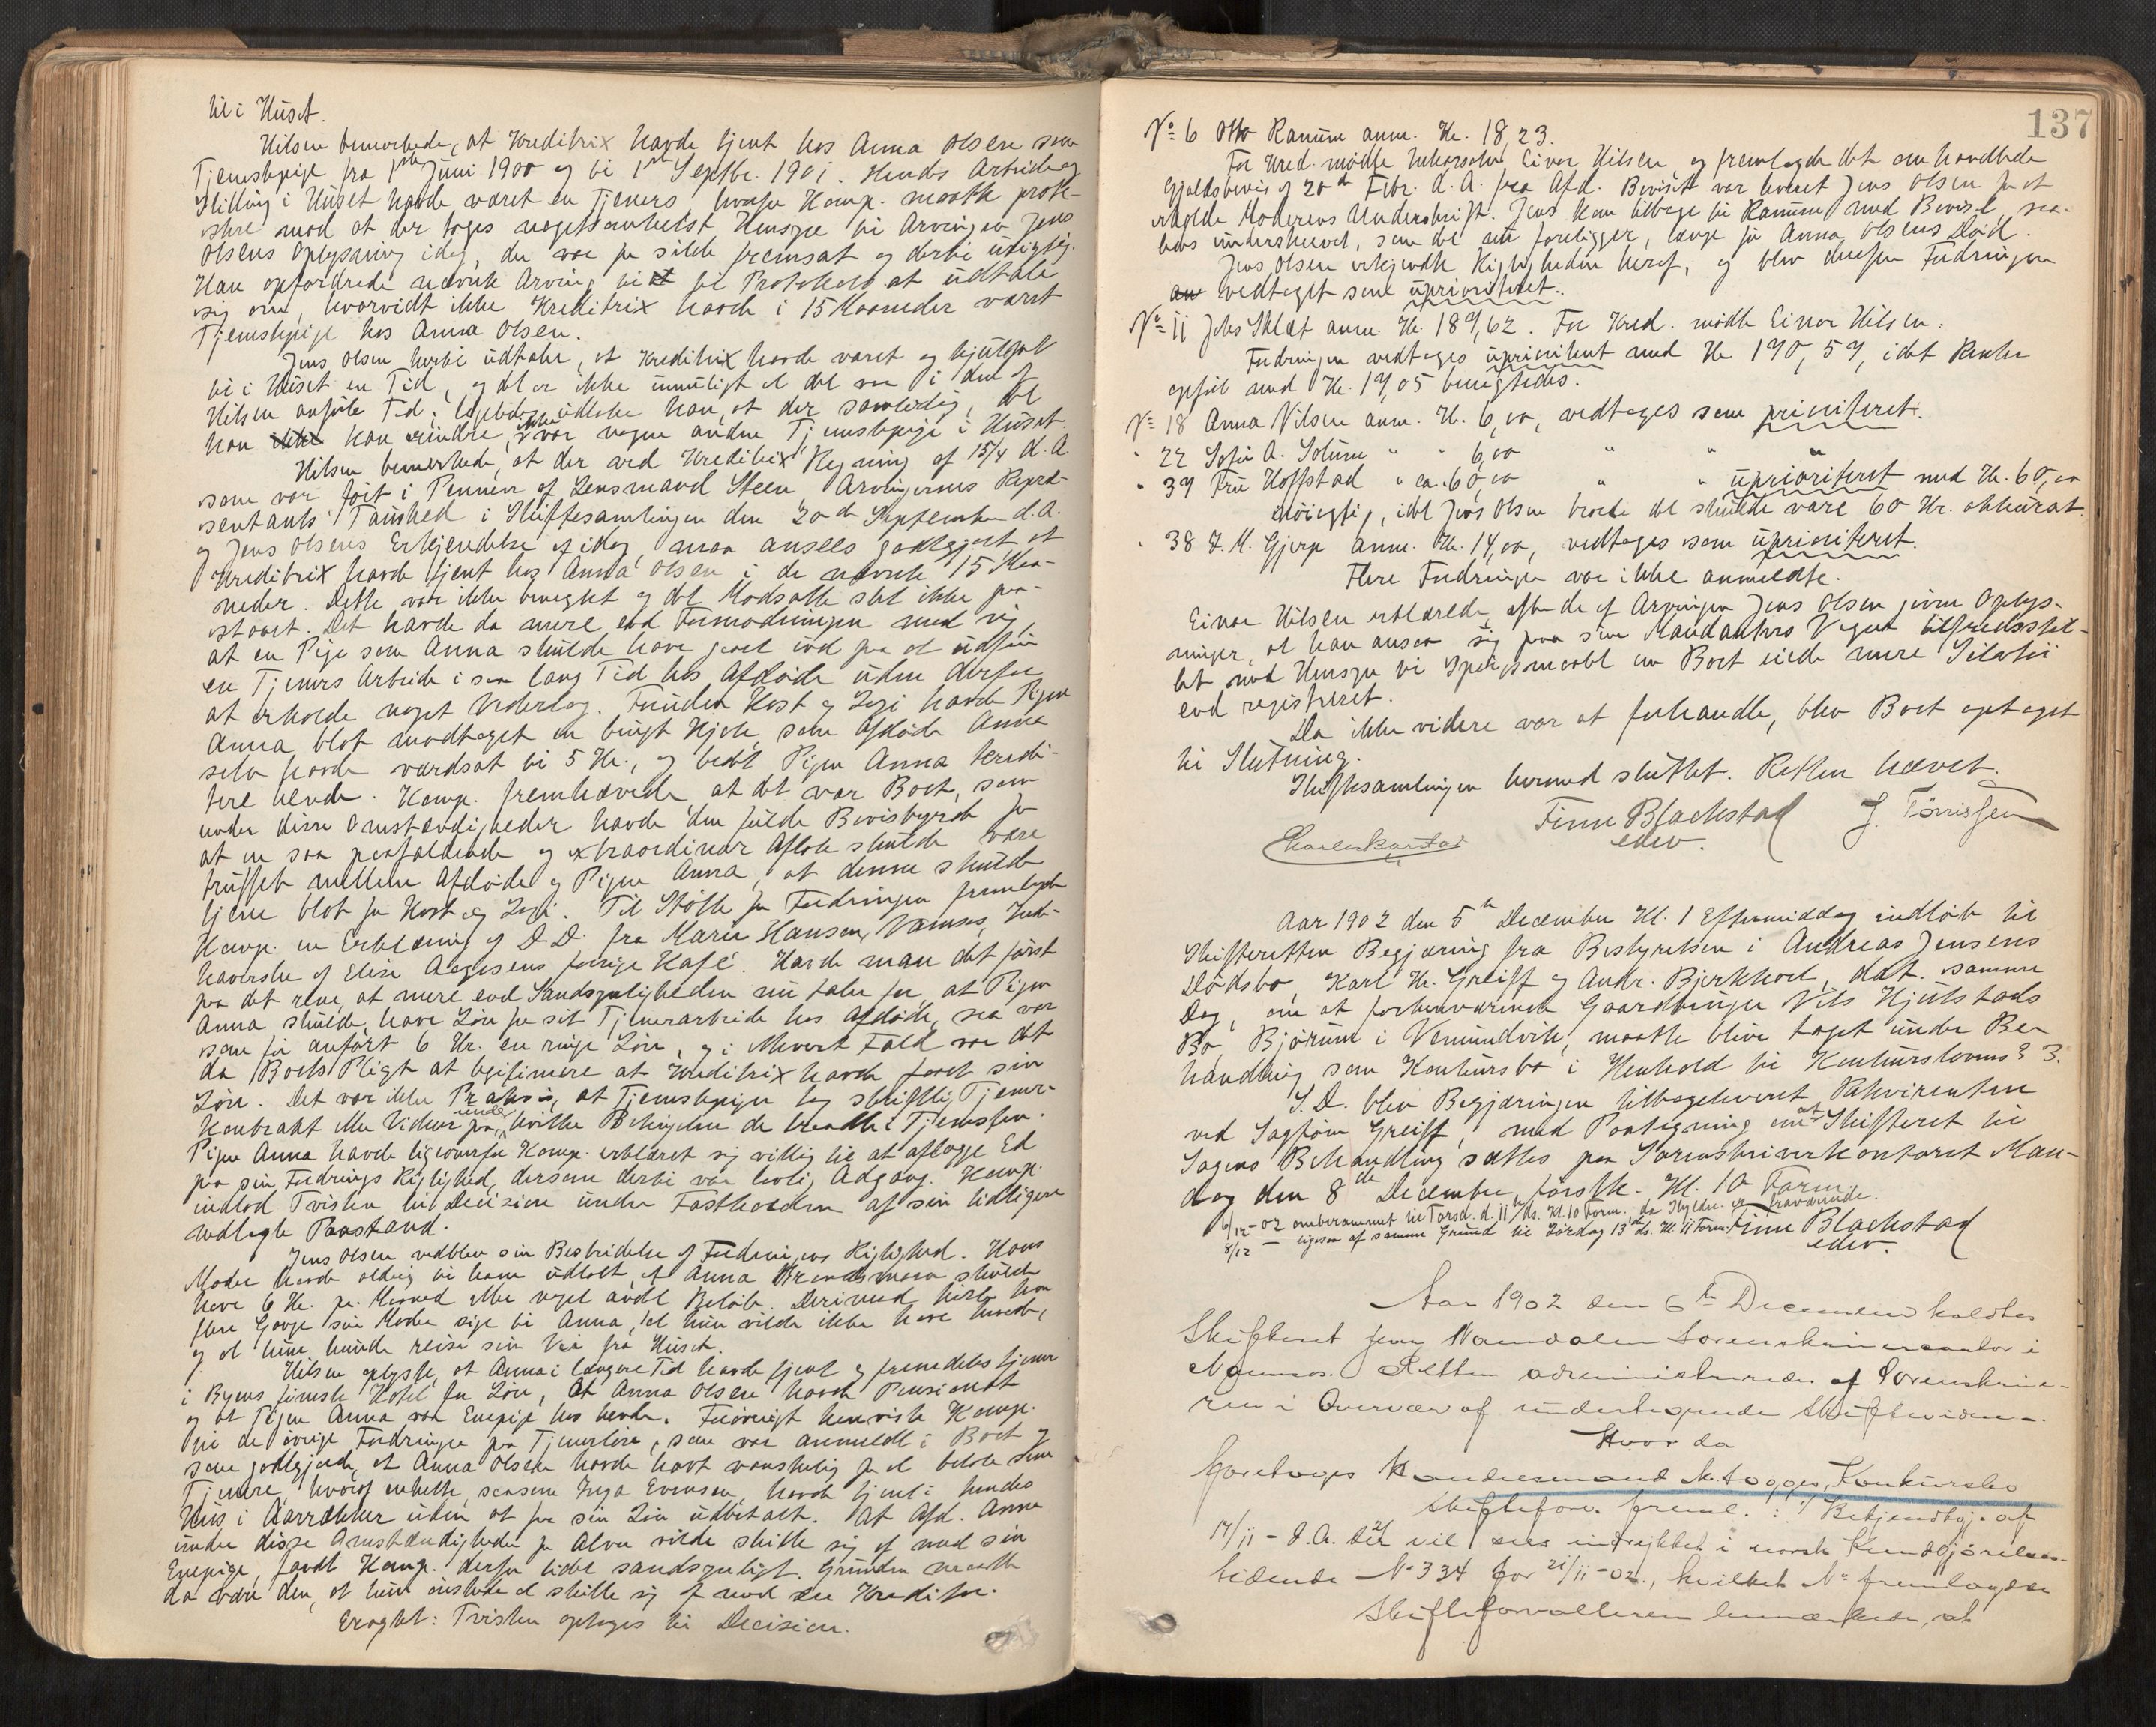 til i Huset.
Hilsen bemerkede, at Kreditrix havde tjent hos Anna Olsen som
Tjenstepige fra 1ste Juni 1900 og til 1ste Septbr. 1901. Hendes Arbeide og
Stilling i Huset havde været en Tjeners, hvorfor Komp. maatte prote-
stere mod at der toges nogetsomhelst Hensyn til Arvingen Jens
Olsens Oplysning idag, der var for silde fremsat og dertil urigtig.
Han opfordrede nævnte Arving til til Protokols at udtale
sig om, hvorvidt ikke Kreditrix havde i 15 Maaneder været
Tjenstepige hos Anna Olsen.
Jens Olsen hertil udtaler, at Kreditrix havde været og hjulpet
til i Huset en Tid, og det er ikke umuligt at det var i den af
Hilsen anførte Tid; ligeledes udtaler han, at der samtidig, det
han kan erindre, ikke var nogen anden Tjenstepige i Huset.
Hilsen bemerkede, at der ved Kreditrix' Regning af 15/4 d. A.
som var ført i Pennen af Lensmand Steen, Arvingernes Repræ-
sentants Taushed i Skiftesamlingen den 20de September d. A.
og Jens Olsens Erkjendelse af idag, maa ansees godtgjort at
Kreditrix havde tjent hos Anna Olsen i de nævnte 15 Maa-
neder. Dette var ikke benegtet og det Modsatte slet ikke paa-
staaet. Det havde da mere end Formodningen mod sig,
at en Pige som Anna skulde have gaaet ind paa at udføre
en Tjeners Arbeide i saa lang Tid hos Afdøde uden derfor
at erholde noget Vederlag. Foruden Kost og Logi havde Pigen
Anna blot modtaget en brugt Kjole, som Afdøde Anna
selv havde værdsat til 5 Kr., og bedt Pigen Anna kredi-
tere hende. Komp. fremhævede, at det var Boet, som
under disse Omstændigheder havde den fulde Bevisbyrde for
at en saa paafaldende og extraordinær Aftale skulde være
truffet mellem Afdøde og Pigen Anna, at denne skulde
tjene blot for Kost og Logi. Til Støtte for Fordringen fremlagde
Komp. en Erklæring af D. D. fra Marie Hansen, Namsos, Inde-
haverske af Elise Aagesens forrige Kafé. Havde man det først
paa det rene, at mere end Sandsynligheden nu taler for, at Pigen
Anna skulde have Løn for sit Tjenerarbeide hos Afdøde, saa var
som før anført 6 Kr. en ringe Løn, og i ethvert Fald var det
da Boets Pligt at legitimere at Kreditrix havde faaet sin
Løn. Det var ikke Praksis, at Tjenstepiger tog skriftlig Tjener-
Kontrakt eller Vidner paa, under hvilke Betingelser de traadte i Tjenesten.
Pigen Anna havde ligeoverfor Komp. erklæret sig villig til at aflægge Ed
paa sin Fordrings Rigtighed, dersom dertil var lovlig Adgang. Komp.
indlod Tvisten til Decision under Fastholden af sin tidligere
nedlagte Paastand.
Jens Olsen vedblev sin Bestridelse af Fordringens Rigtighed. Hans
Moder havde aldrig til ham udtalt, at Anna skulde
have 6 Kr. pr. Maaned eller noget andet Beløb. Derimod hørte han
flere Gange sin Moder sige til Anna, at hun vilde ikke have hende,
og at hun kunde reise sin Vei fra Huset.
Hilsen oplyste, at Anna i længere Tid havde tjent og fremdeles tjener
i Byens fineste Hotel for Løn, at Anna Olsen havde Pensionat
og at Pigen Anna var Enepige hos hende. Forøvrigt henviste Komp.
til de øvrige Fordringer paa Tjenerløn, som var anmeldt i Boet og
som godtgjorde, at Anna Olsen havde havt vanskelig for at betale sine
Tjenere, hvoraf enkelte, saasom Inga Evensen, havde tjent i hendes
Hus i Aarrækker uden at faa sin Løn udbetalt. At Afd. Anna
under disse Omstændigheder for Alvor vilde skille sig af med sin
Enepige, fandt Komp. derfor lidet sandsynligt. Grunden maatte
da være den, at hun ønskede at skille sig af med en Kreditor.
Eragtet: Tvisten optages til Decision.
137
No 6 Otto Ranum anm. Kr. 18,23.
For Kred. mødte Inkassator Einar Hilsen og fremlagde det omhandlede
Gjældsbevis af 20de Febr. d. A. fra Afd. Beviset var leveret Jens Olsen for at
erholde Moderens Underskrift. Jens kom tilbage til Ranum med Beviset, saa-
ledes underskrevet, som det nu foreligger, længe før Anna Olsens Død.
Jens Olsen erkjendte Rigtigheden heraf, og blev derfor Fordringen
vedtaget som uprioriteret.
No 11 Johs Sklet anm. Kr. 187,62. For Kred. mødte Einar Hilsen.
Fordringen vedtoges uprioriteret med Kr. 170,57, idet Renter
opført med Kr. 17,05 benegtedes.
No 18 Anna Nilsen anm. Kr. 6,00, vedtoges som prioriteret.
" 22 Sofie A. Solum " " 6,00 " " "
" 37 Fru Hoffstad " ca. 60,00 " " uprioriteret med Kr. 60,00
nøiagtig, idet Jens Olsen troede det skulde være 60 Kr. akkurat.
" 38 J. M. Gjerp anm. Kr. 14,00, vedtoges som uprioriteret.
Flere Fordringer var ikke anmeldte.
Einar Hilsen erklærede efter de af Arvingen Jens Olsen givne Oplys-
ninger, at han ansaa sig paa sine Mandanters Vegne tilfredsstil-
let med Hensyn til Spørgsmaalet om Boet eiede mere
end registreret.
Da ikke videre var at forhandle, blev Boet optaget
til Slutning.
Skiftesamlingen hermed sluttet. Retten hævet.
Finn Blackstad J. Tørrissen
edsv.
Aar 1902 den 5te December Kl. 1 Eftermiddag indløb til
Skifteretten Begjæring fra Bestyrelsen i Andreas Jensens
Dødsbo, Karl Kr. Greiff og Andr. Bjerkhoel, dat. samme
Dag, om at forhenværende Gaardbruger Nils Hjulstads
Bo, Bjørum i Vemundvik, maatte blive taget under Be-
handling som Konkursbo i Henhold til Konkurslovens § 3.
S. D. blev Begjæringen tilbageleveret Rekvirenten
ved Sagfører Greiff, med Paategning om at Skifteret til
Sagens Behandling sattes paa Sorenskriverkontoret Man-
dag den 8de December førstk. Kl. 10 Form.
6/12-02 omberammet til Torsd. d. 11/ds. Kl. 10 Form., da Skyldn. er fraværende.
8/12 — ligesaa af samme Grund til Lørdag 13de ds. Kl. 11 Form. Finn Blackstad
edsv.
Aar 1902 den 6te December holdtes
Skifteret paa Namdalens Sorenskriverkontor i
Namsos. Retten administreredes af Sorenskrive-
ren i Overvær af undertegnede Skiftevidner.
Hvorda
Foretoges Handelsmand M. Aagges Konkursbo
Skifteforv. freml.: 1/ Bekjendtgj. af
17/11 - d. A. der vil sees indrykket i norsk Kundgjørelses-
tidende No 334 for 21/11-02., hvilket No fremlagdes
Skifteforvalteren bemærkede, at